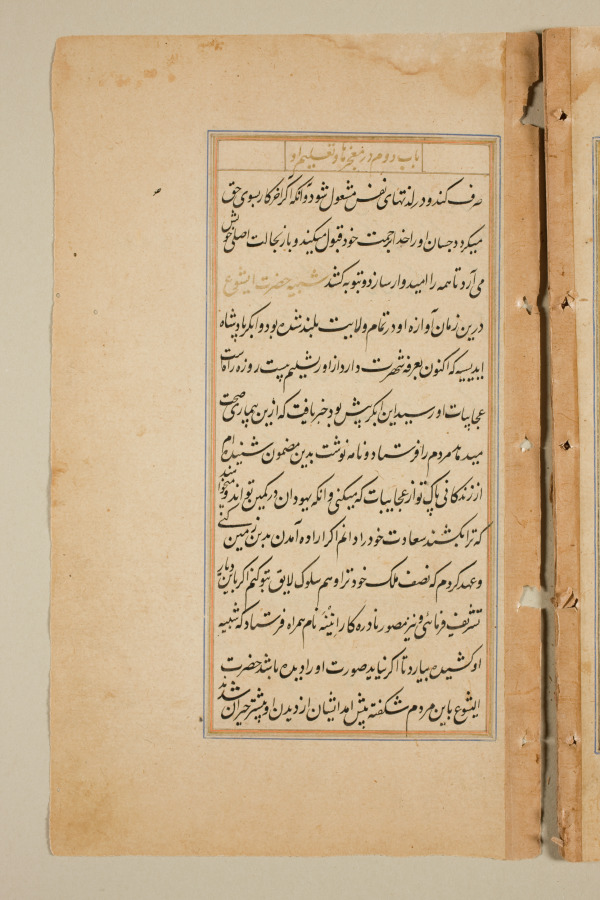 باب دوم در معجزها و تعلیم او
صرف کند و در لذتهای نفس مشغول شود و آنکه اگر آخر کار بسوی حق
میگردد چسان او را خدا برحمت خود قبول میکند و باز بحالت اصلی خویش
می آرد تا همه را امیدوار سازد و بتوبه کشد شبیه حضرت ایشوع
درین زمان آوازه او در تمام ولایت بلند شده بود و ابکر پادشاه
ایدیسیه که اکنون بعرفه شهرت دارد از اورشلیم بیست روزه راه است
عجایبات او رسید این ابکر پیش بود خبر یافت که ازین بیماری صحت
میدهد مردم را فرستاد و نامه نوشت بدین مضمون شنیده ام
از زندگانی پاک تو از عجایبات که میکنی و آنکه یهودان در کمین تو اند و میخواهند
که ترا بکشند سعادت خود را دانم اگر اراده آمدن بدین زمین کنی
و عهد کردم که نصف ملک خود ترا دهم سلوک لایق بتو کنم اگر باین دیار
تشریف فرمائی و نیز مصور نادره کار انیئه نام همراه فرستاد که شبیه
او کشیده بیارد تا اگر نیاید صورت او را دیده باشد حضرت
ایشوع باین مردم شکفته پیش آمد ایشان از دیدن او بیشتر حیران شدند